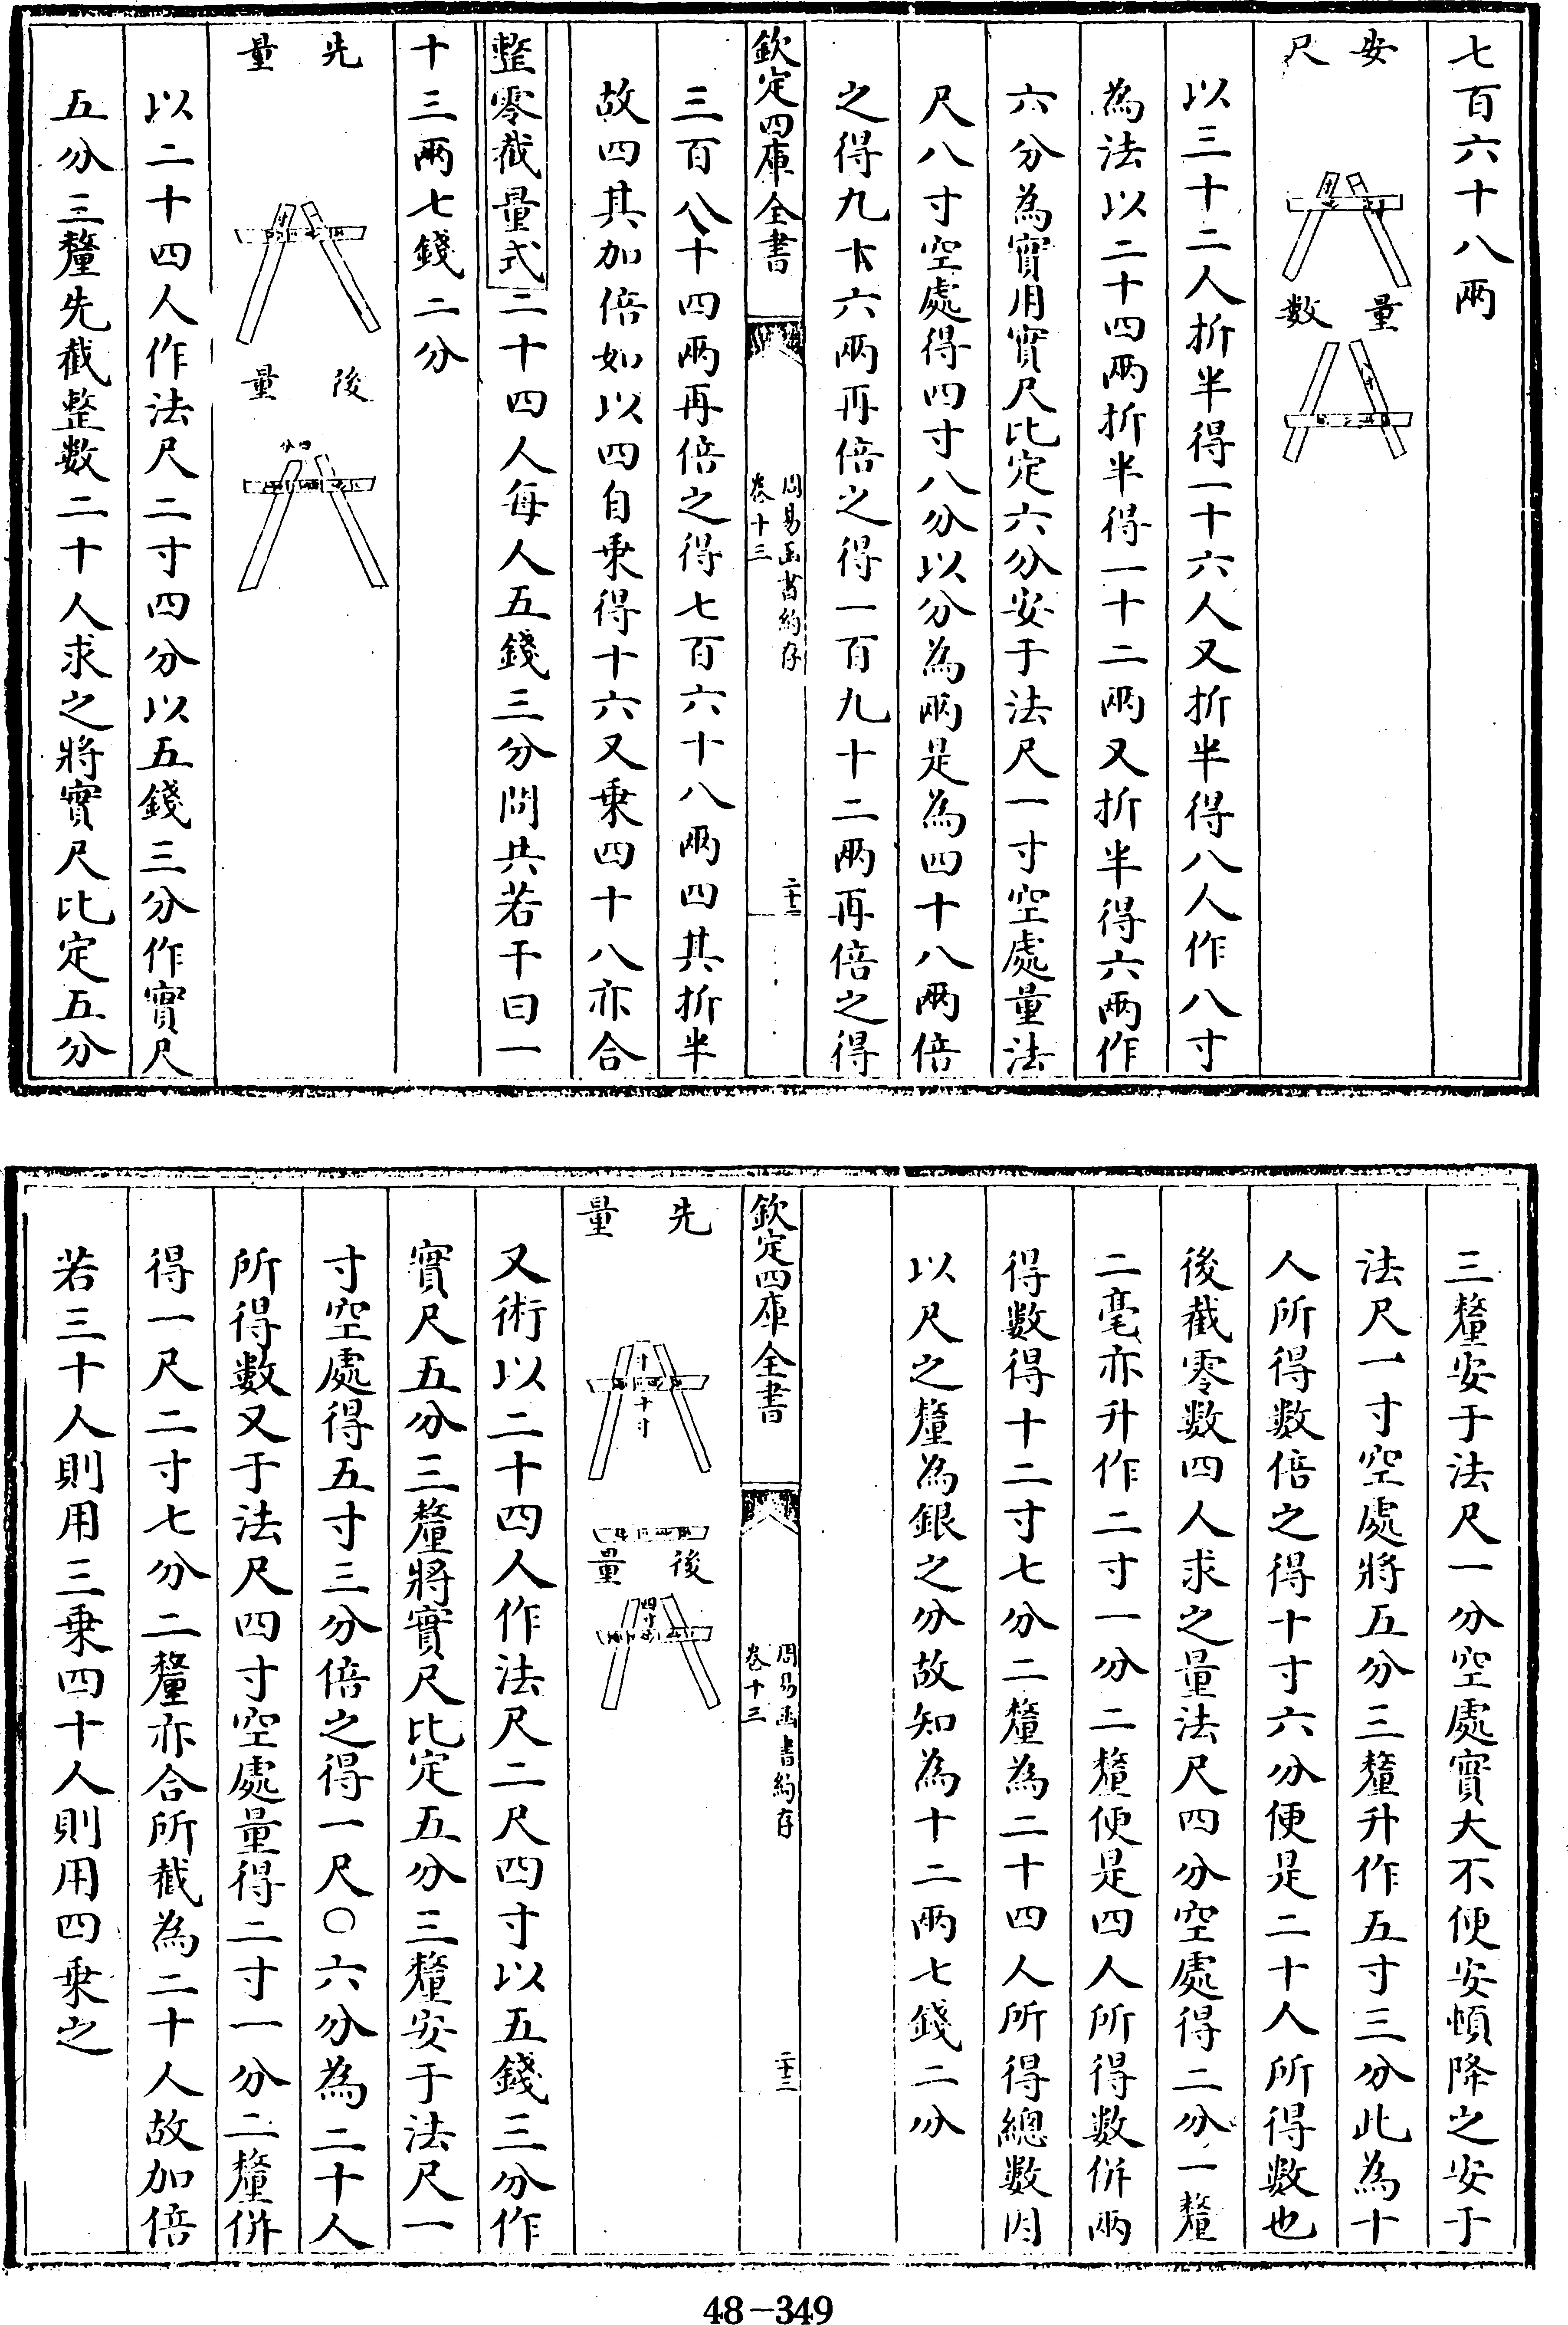 七百六十八兩
安尺
量數
以三十二人折半得一十六人又折半得八人作八寸
為法以二十四兩折半得一十二兩又折半得六兩作
六分為實用實尺比定六分安于法尺一寸空處量法
尺八寸空處得四寸八分以分為兩是為四十八兩倍
之得九十六兩再倍之得一百九十二兩再倍之得
欽定四庫全書
周易函書約存
卷十三
二十二
三百八十四兩再倍之得七百六十八兩四其折半
故四其加倍如以四自乗得十六又乗四十八亦合
整零截量式二十四人每人五錢三分問共若干曰一
十三兩七錢二分
先量
後量
以二十四人作法尺二寸四分以五錢三分作實尺
五分三釐先截整數二十人求之將實尺比定五分
三釐安于法尺一分空處實大不便安頓降之安于
法尺一寸空處將五分三釐升作五寸三分此為十
人所得數倍之得十寸六分便是二十人所得數也
後截零數四人求之量法尺四分空處得二分一釐
二毫亦升作二寸一分二釐便是四人所得數併兩
得數得十二寸七分二釐為二十四人所得總數因
以尺之釐為銀之分故知為十二兩七錢二分
欽定四庫全書
周易函書約存
卷十三
二十三
先量
十寸
後量
四寸
又術以二十四人作法尺二尺四寸以五錢三分作
實尺五分三釐將實尺比定五分三釐安于法尺一
寸空處得五寸三分倍之得一尺〇六分為二十人
所得數又于法尺四寸空處量得二寸一分二釐併
得一尺二寸七分二釐亦合所截為二十人故加倍
若三十人則用三乗四十人則用四乗之
48-349